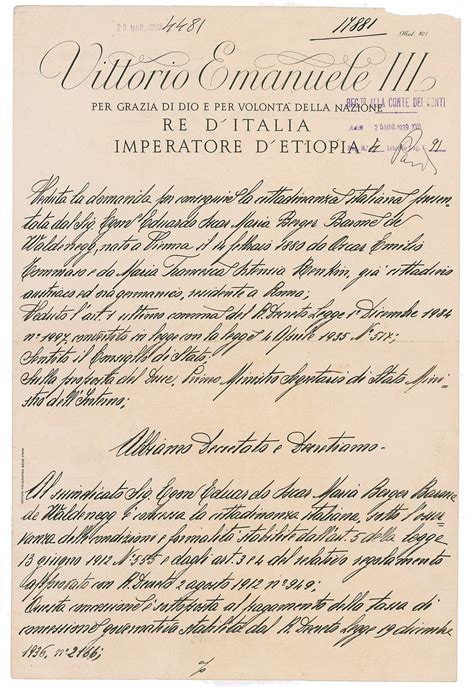 20 MAR. 1939 4481 17881
Mod. 821
Vittorio Emanuele III
PER GRAZIA DI DIO E PER VOLONTA' DELLA NAZIONE
REG.TO ALLA CORTE DEI CONTI
RE D'ITALIA
ADDI 25 MAR. 1939 XVII
IMPERATORE D'ETIOPIA
Veduta la domanda per conseguire la cittadinanza italiana presen-
tata dal Sig. Egon Eduardo Oscar Maria Berger Barone de
Waldenegg, nato a Vienna il 14 febbraio 1880 da Oscar Emilio
Tommaso e da Maria Francesca Ortensia Renkin, già cittadino
austriaco ed ora germanico, residente a Roma;
Veduto l'art. 1 ultimo comma del R. Decreto Legge 1° Dicembre 1934
n° 1997, convertito in legge con la legge 4 Aprile 1935 N° 517;
Sentito il Consiglio di Stato;
Sulla proposta del Duce, Primo Ministro Segretario di Stato, Mini-
stro dell'Interno;
Abbiamo Decretato e Decretiamo
Al suindicato Sig. Egon Eduardo Oscar Maria Berger Barone
de Waldenegg è concessa la cittadinanza italiana, sotto l'osser-
vanza delle condizioni e formalità stabilite dall'art. 5 della Legge
13 giugno 1912 N° 555 e dagli art. 3 e 4 del relativo regolamento
approvato con R. Decreto 2 agosto 1912 n° 949;
Questa concessione è sottoposta al pagamento della tassa di
concessione governativa stabilita dal R. Decreto Legge 19 dicembre
1936, n° 2166;